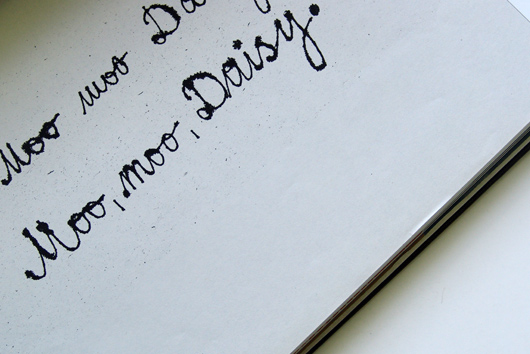 Moo moo
Moo, moo, Daisy.